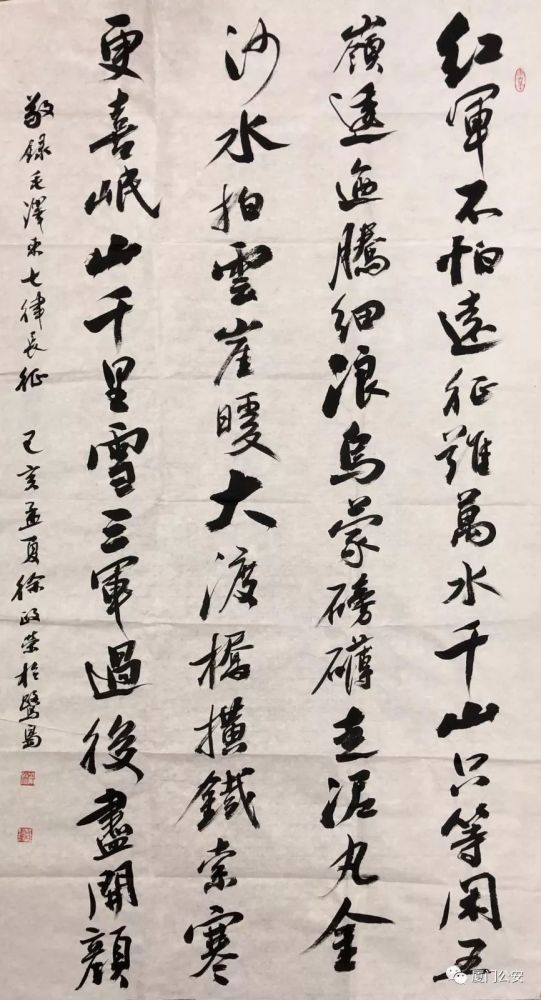 红軍不怕遠征難萬水千山只等閑五
嶺逶迤騰細浪烏蒙磅礴走泥丸金
沙水拍雲崖暖大渡橋横鐵索寒
更喜岷山千里雪三軍過後盡開顔
敬録毛澤东七律長征 己亥孟夏徐政荣於鷺島
厦门公安